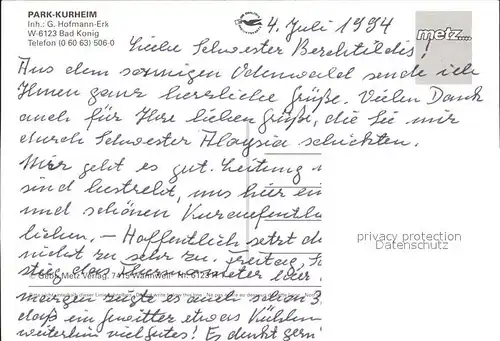 PARK-KURHEIM
Inh.: G. Hofmann-Erk
W-6123 Bad König
Telefon (0 60 63) 506-0
metz...
4. Juli 1994
Liebe Schwester Berchtildis!
Aus dem sonnigen Odenwald sende ich
Ihnen ganz herzliche Grüße. Vielen Dank
auch für Ihre lieben Grüße, die Sie mir
durch Schwester Aloysia schickten.
Mir geht es gut. Leitung
sind bestrebt, uns hier ein
und schönen Kuraufenth
lichen. – Hoffentlich setzt d
nicht zu sehr zu. Freitag,
stieg das Thermometer hier
© Georg Metz Verlag, 7415 Wannweil
morgen zeigte es auch schon 3
daß ein Gewitter etwas Kühlun
weiterhin viel Gutes! Es denkt gern
privacy protection
Datenschutz